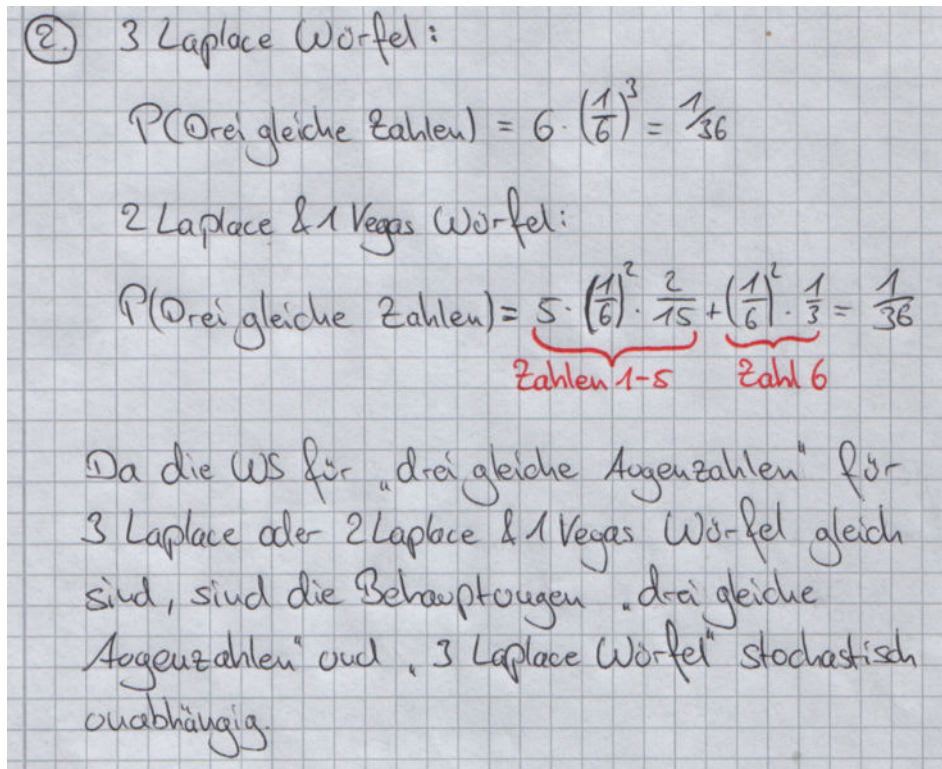 2. 3 Laplace Würfel:
P(Drei gleiche Zahlen) = 6 · (1/6)³ = 1/36
2 Laplace & 1 Vegas Würfel:
P(Drei gleiche Zahlen) = 5 · (1/6)² · 2/15 + (1/6)² · 1/3 = 1/36
Zahlen 1-5 Zahl 6
Da die WS für „drei gleiche Augenzahlen" für
3 Laplace oder 2 Laplace & 1 Vegas Würfel gleich
sind, sind die Behauptungen „drei gleiche
Augenzahlen" und „3 Laplace Würfel" stochastisch
unabhängig.